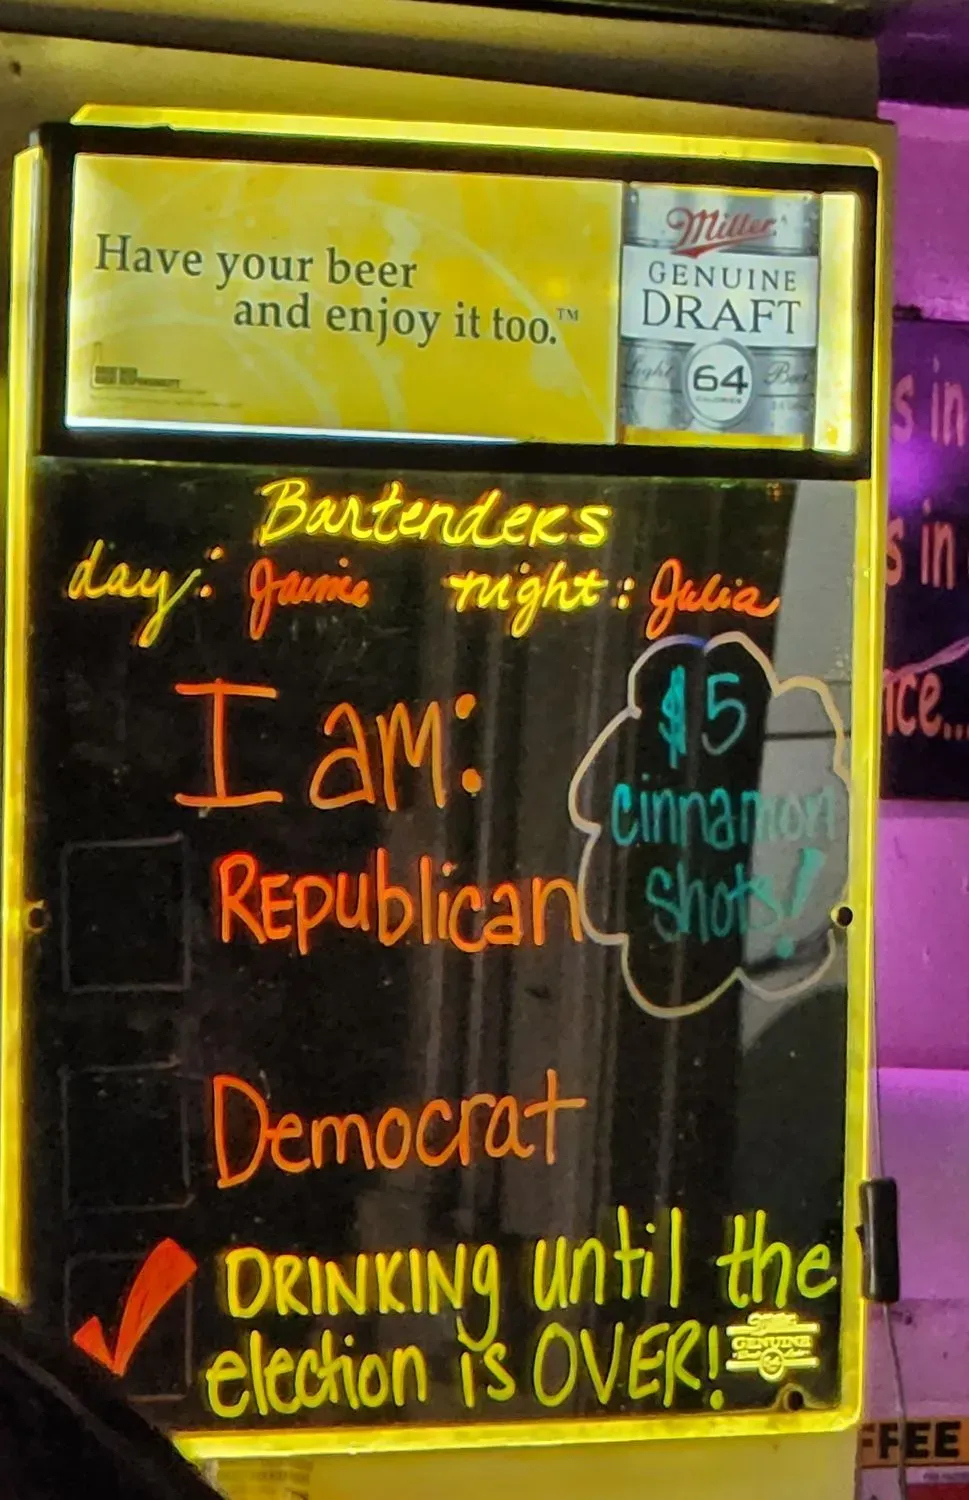 Have your beer
and enjoy it too.™
Miller
GENUINE
DRAFT
Light 64 Beer
CALORIES
Bartenders
day: Jaimie night: Julia
I am:
$5
cinnamon
shots!
Republican
Democrat
✓ DRINKING until the
election is OVER!
Miller
GENUINE
64
s in
s in
ice...
FFEE